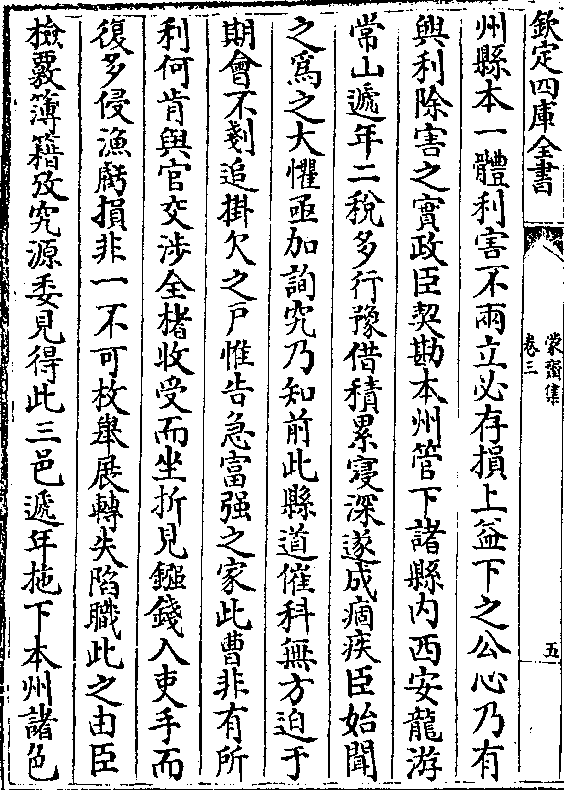 欽定四庫全書
蒙齋集
卷三
五
州縣本一體利害不兩立必存損上益下之公心乃有
興利除害之實政臣契勘本州管下諸縣内西安龍游
常山遞年二稅多行豫借積累寖深遂成痼疾臣始聞
之為之大懼亟加詢究乃知前此縣道催科無方迫于
期會不剗追掛欠之戸惟告急富强之家此曹非有所
利何肯與官交涉全楮收受而坐折見鏹錢入吏手而
復多侵漁虧損非一不可枚舉展轉失陷職此之由臣
檢覈簿籍攷究源委見得此三邑遞年拖下本州諸色